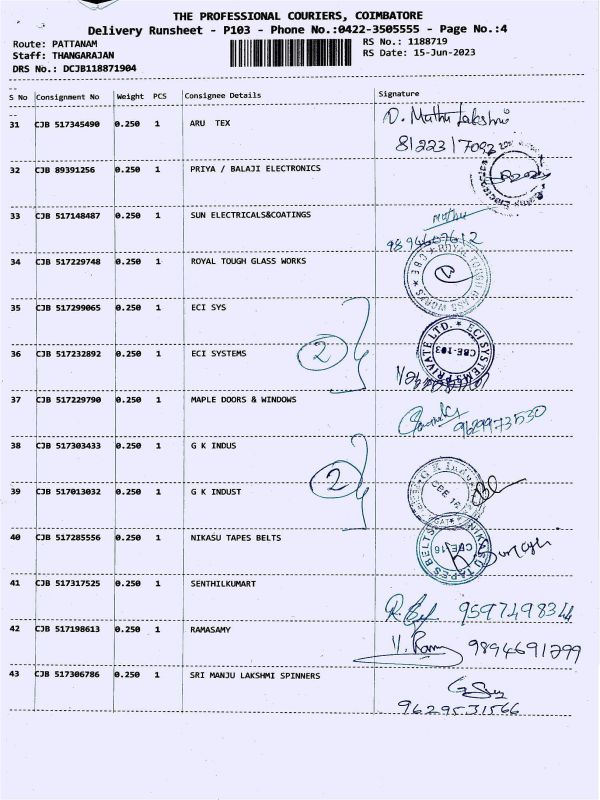 THE PROFESSIONAL COURIERS, COIMBATORE
Delivery Runsheet - P103 - Phone No.:0422-3505555 - Page No.:4
Route: PATTANAM RS No.: 1188719
Staff: THANGARAJAN RS Date: 15-Jun-2023
DRS No.: DCJB118871904
S No Consignment No Weight PCS Consignee Details Signature
31 CJB 517345490 0.250 1 ARU TEX D. Muthu Lakshmi
8122317092
32 CJB 89391256 0.250 1 PRIYA / BALAJI ELECTRONICS
33 CJB 517148487 0.250 1 SUN ELECTRICALS&COATINGS Muthu
34 CJB 517229748 0.250 1 ROYAL TOUGH GLASS WORKS
ROYAL TOUGH GLASS WORKS CBE
35 CJB 517299065 0.250 1 ECI SYS
36 CJB 517232892 0.250 1 ECI SYSTEMS 2
ECI SYSTEMS PRIVATE LTD. CBE-103
37 CJB 517229790 0.250 1 MAPLE DOORS & WINDOWS
9629973530
38 CJB 517303433 0.250 1 G K INDUS
2
39 CJB 517013032 0.250 1 G K INDUST
40 CJB 517285556 0.250 1 NIKASU TAPES BELTS
NIKASU TAPES BELTS CBE-16
41 CJB 517317525 0.250 1 SENTHILKUMART
9597498344
42 CJB 517198613 0.250 1 RAMASAMY
9894691299
43 CJB 517306786 0.250 1 SRI MANJU LAKSHMI SPINNERS
9629531566